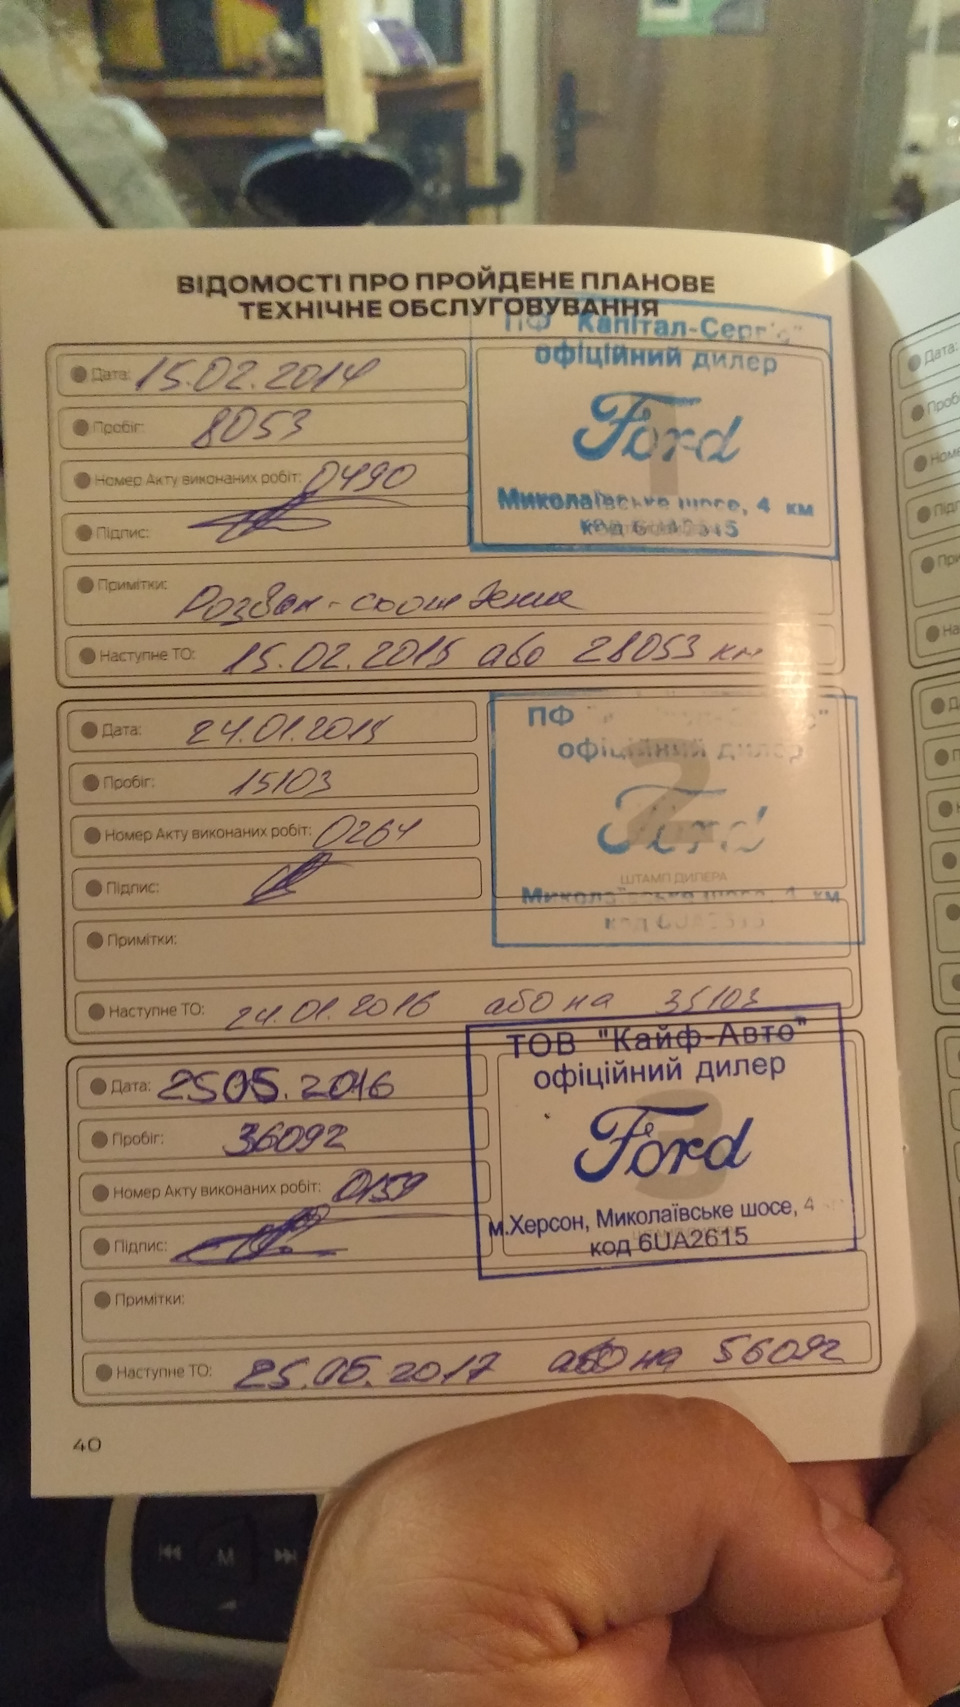 ВІДОМОСТІ ПРО ПРОЙДЕНЕ ПЛАНОВЕ
ТЕХНІЧНЕ ОБСЛУГОВУВАННЯ
Дата: 15.02.2014
Пробіг: 8053
Номер Акту виконаних робіт: 0490
Підпис:
Примітки: Розвал-сходження
Наступне ТО: 15.02.2015 або 28053 км
ПФ "Капітал-Сервіс"
офіційний дилер
Ford
Миколаївське шосе, 4 км
код 6UA2615
Дата: 24.01.2015
Пробіг: 15103
Номер Акту виконаних робіт: 0264
Підпис:
Примітки:
Наступне ТО: 24.01.2016 або на 35103
ПФ
офіційний дилер
2
Ford
ШТАМП ДИЛЕРА
Миколаївське шосе, 4 км
код 6UA2615
Дата: 25.05.2016
Пробіг: 36092
Номер Акту виконаних робіт: 0159
Підпис:
Примітки:
Наступне ТО: 25.05.2017 або на 56092
ТОВ "Кайф-Авто"
офіційний дилер
3
Ford
м.Херсон, Миколаївське шосе, 4
код 6UA2615
40
Дата:
M